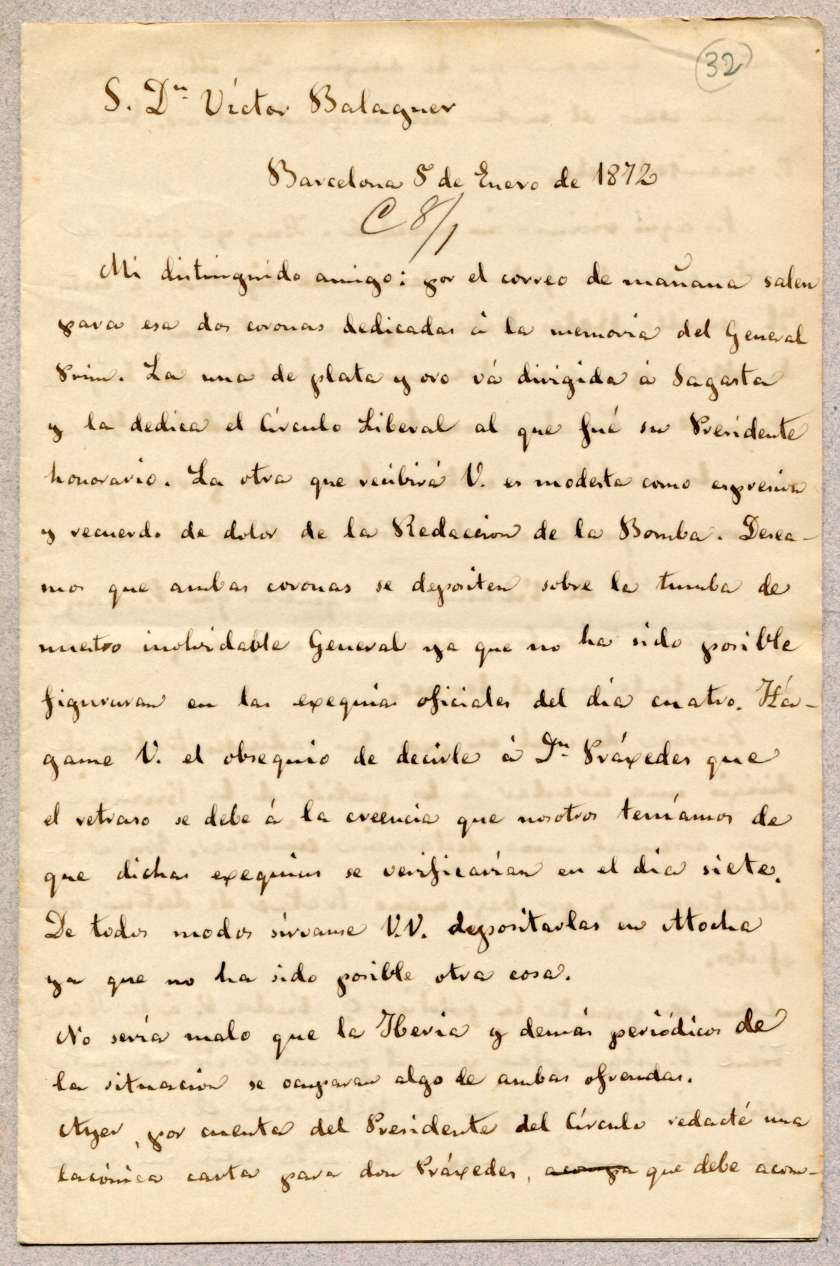 32
S. Dn Víctor Balaguer
Barcelona 5 de Enero de 1872
C 8/1
Mi distinguido amigo: por el correo de mañana salen
para esa dos coronas dedicadas á la memoria del General
Prim. La una de plata y oro vá dirigida á Sagasta
y la dedica el Círculo Liberal al que fué su Presidente
honorario. La otra que recibirá V. es modesta como espresiva
y recuerdo de dolor de la Redaccion de la Bomba. Desea-
mos que ambas coronas se depositen sobre la tumba de
nuestro inolvidable General ya que no ha sido posible
figuraran en las exequias oficiales del día cuatro. Há-
game V. el obsequio de decirle á Dn Práxedes que
el retraso se debe á la creencia que nosotros teníamos de
que dichas exequias se verificarían en el día siete.
De todos modos sírvanse V.V. depositarlas en Atocha
ya que no ha sido posible otra cosa.
No sería malo que la Iberia y demás periódicos de
la situacion se ocuparan algo de ambas ofrendas.
Ayer, por cuenta del Presidente del Círculo redacté una
lacónica carta para don Práxedes, acompa que debe acom-